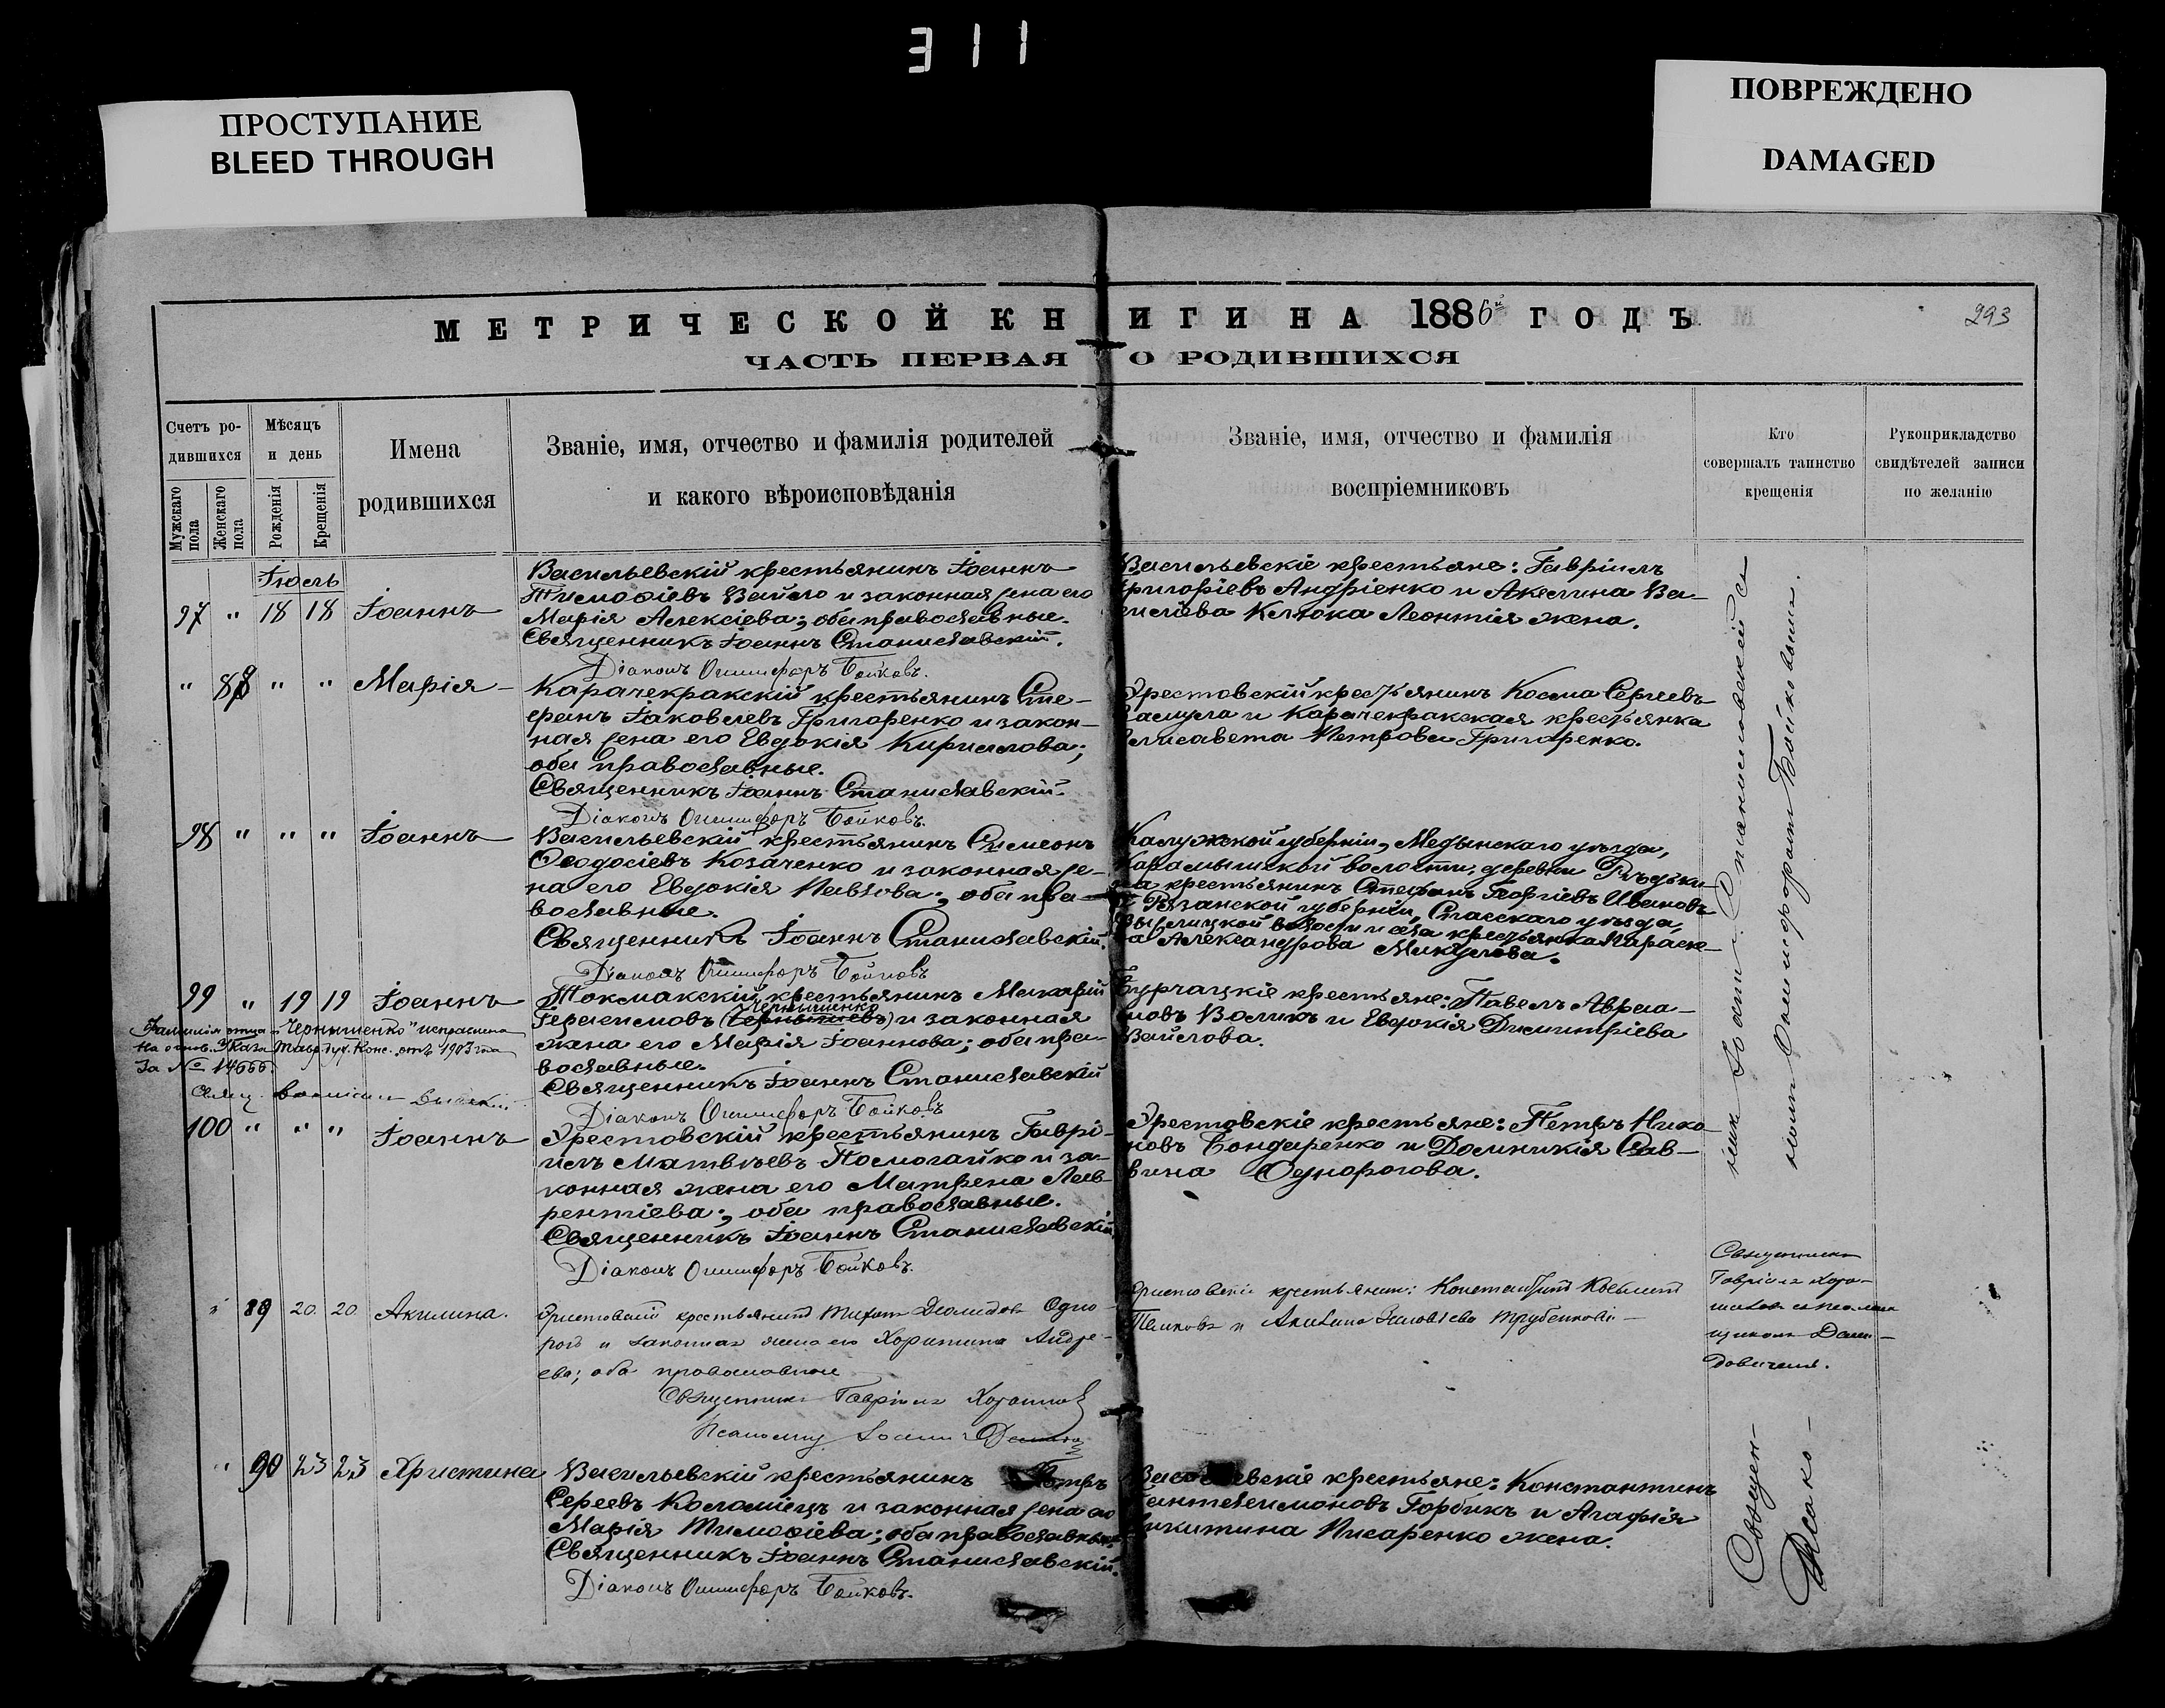 311
ПРОСТУПАНИЕ
BLEED THROUGH
ПОВРЕЖДЕНО
DAMAGED
МЕТРИЧЕСКОЙ КНИГИ НА 1886й ГОДЪ
293
ЧАСТЬ ПЕРВАЯ О РОДИВШИХСЯ
Счетъ ро-
дившихся
Мужскаго пола
Женскаго пола
Мѣсяцъ
и день
Рожденія
Крещенія
Имена
родившихся
Званіе, имя, отчество и фамилія родителей
и какого вѣроисповѣданія
Званіе, имя, отчество и фамилія
воспріемниковъ
Кто
совершалъ таинство
крещенія
Рукоприкладство
свидѣтелей записи
по желанію
Іюль
97 " 18 18 Іоаннъ
Васильевскій крестьянинъ Іоаннъ
Тимоѳіевъ Вайло и законная жена его
Марія Алексіева; оба православные.
Священникъ Іоаннъ Станиславскій.
Діаконъ Онисифоръ Бойковъ.
Васильевскіе крестьяне: Гавріилъ
Григоріевъ Андріенко и Акилина Ва-
силіева Клюка Леонтія жена.
" 88 " " Марія
Карачекракскій крестьянинъ Сте-
фанъ Іаковлевъ Григоренко и закон-
ная жена его Евдокія Кириллова;
оба православные.
Священникъ Іоаннъ Станиславскій.
Діаконъ Онисифоръ Бойковъ.
Эрестовскій крестьянинъ Косма Сергіевъ
и Карачекракская крестьянка
Елисавета Петрова Григоренко.
98 " " " Іоаннъ
Васильевскій крестьянинъ Симеонъ
Ѳеодосіевъ Козаченко и законная же-
на его Евдокія Павлова; оба пра-
вославные.
Священникъ Іоаннъ Станиславскій.
Діаконъ Онисифоръ Бойковъ
Калужской губерніи, Медынскаго уѣзда,
Карамышской волости, деревни
крестьянинъ Стефанъ Георгіевъ Ивановъ
и Рязанской губерніи, Спасскаго уѣзда,
волости и села крестьянка Параске-
ва Александрова Микулова.
99 " 19 19 Іоаннъ
Токмакскій крестьянинъ Макарій
Чернышенко
Герасимовъ (Чернышевъ) и законная
жена его Марія Іоаннова; оба пра-
вославные.
Священникъ Іоаннъ Станиславскій
Діаконъ Онисифоръ Бойковъ
Фамилія отца „Чернышенко" исправлена
на основ. Указа Тавр. Дух. Конс. отъ 1903 года
За № 14666.
Свящ.
Бурчацкіе крестьяне: Павелъ Авраа-
мовъ Воликъ и Евдокія Димитріева
Вайлова.
100 " " " Іоаннъ
Эрестовскій крестьянинъ Гаврі-
илъ Матвѣевъ Помогайко и за-
конная жена его Матрена Лав-
рентіева; оба православные.
Священникъ Іоаннъ Станиславскій
Діаконъ Онисифоръ Бойковъ.
Эрестовскіе крестьяне: Петръ Нико-
новъ Бондаренко и Домникія Сав-
вина Однорогова.
" 89 20 20 Акилина.
крестьянинъ Тихонъ Діомидовъ Одно-
рогъ и законная жена его Харитина Андре-
ева; оба православные
Священникъ Гавріилъ
Псаломщ. Іоаннъ
крестьяне: Константинъ
и Акилина
Священникъ
Гавріилъ
" 90 23 23 Христина
Васильевскій крестьянинъ Петръ
Сергеевъ Коломіецъ и законная жена его
Марія Тимоѳіева; оба православные.
Священникъ Іоаннъ Станиславскій.
Діаконъ Онисифоръ Бойковъ.
Васильевскіе крестьяне: Константинъ
Пантелеимоновъ Горбикъ и Агафія
Никитина Писаренко жена.
Священ-
никъ Іоаннъ Станиславскій съ
Діако-
номъ Онисифоромъ Бойковымъ.